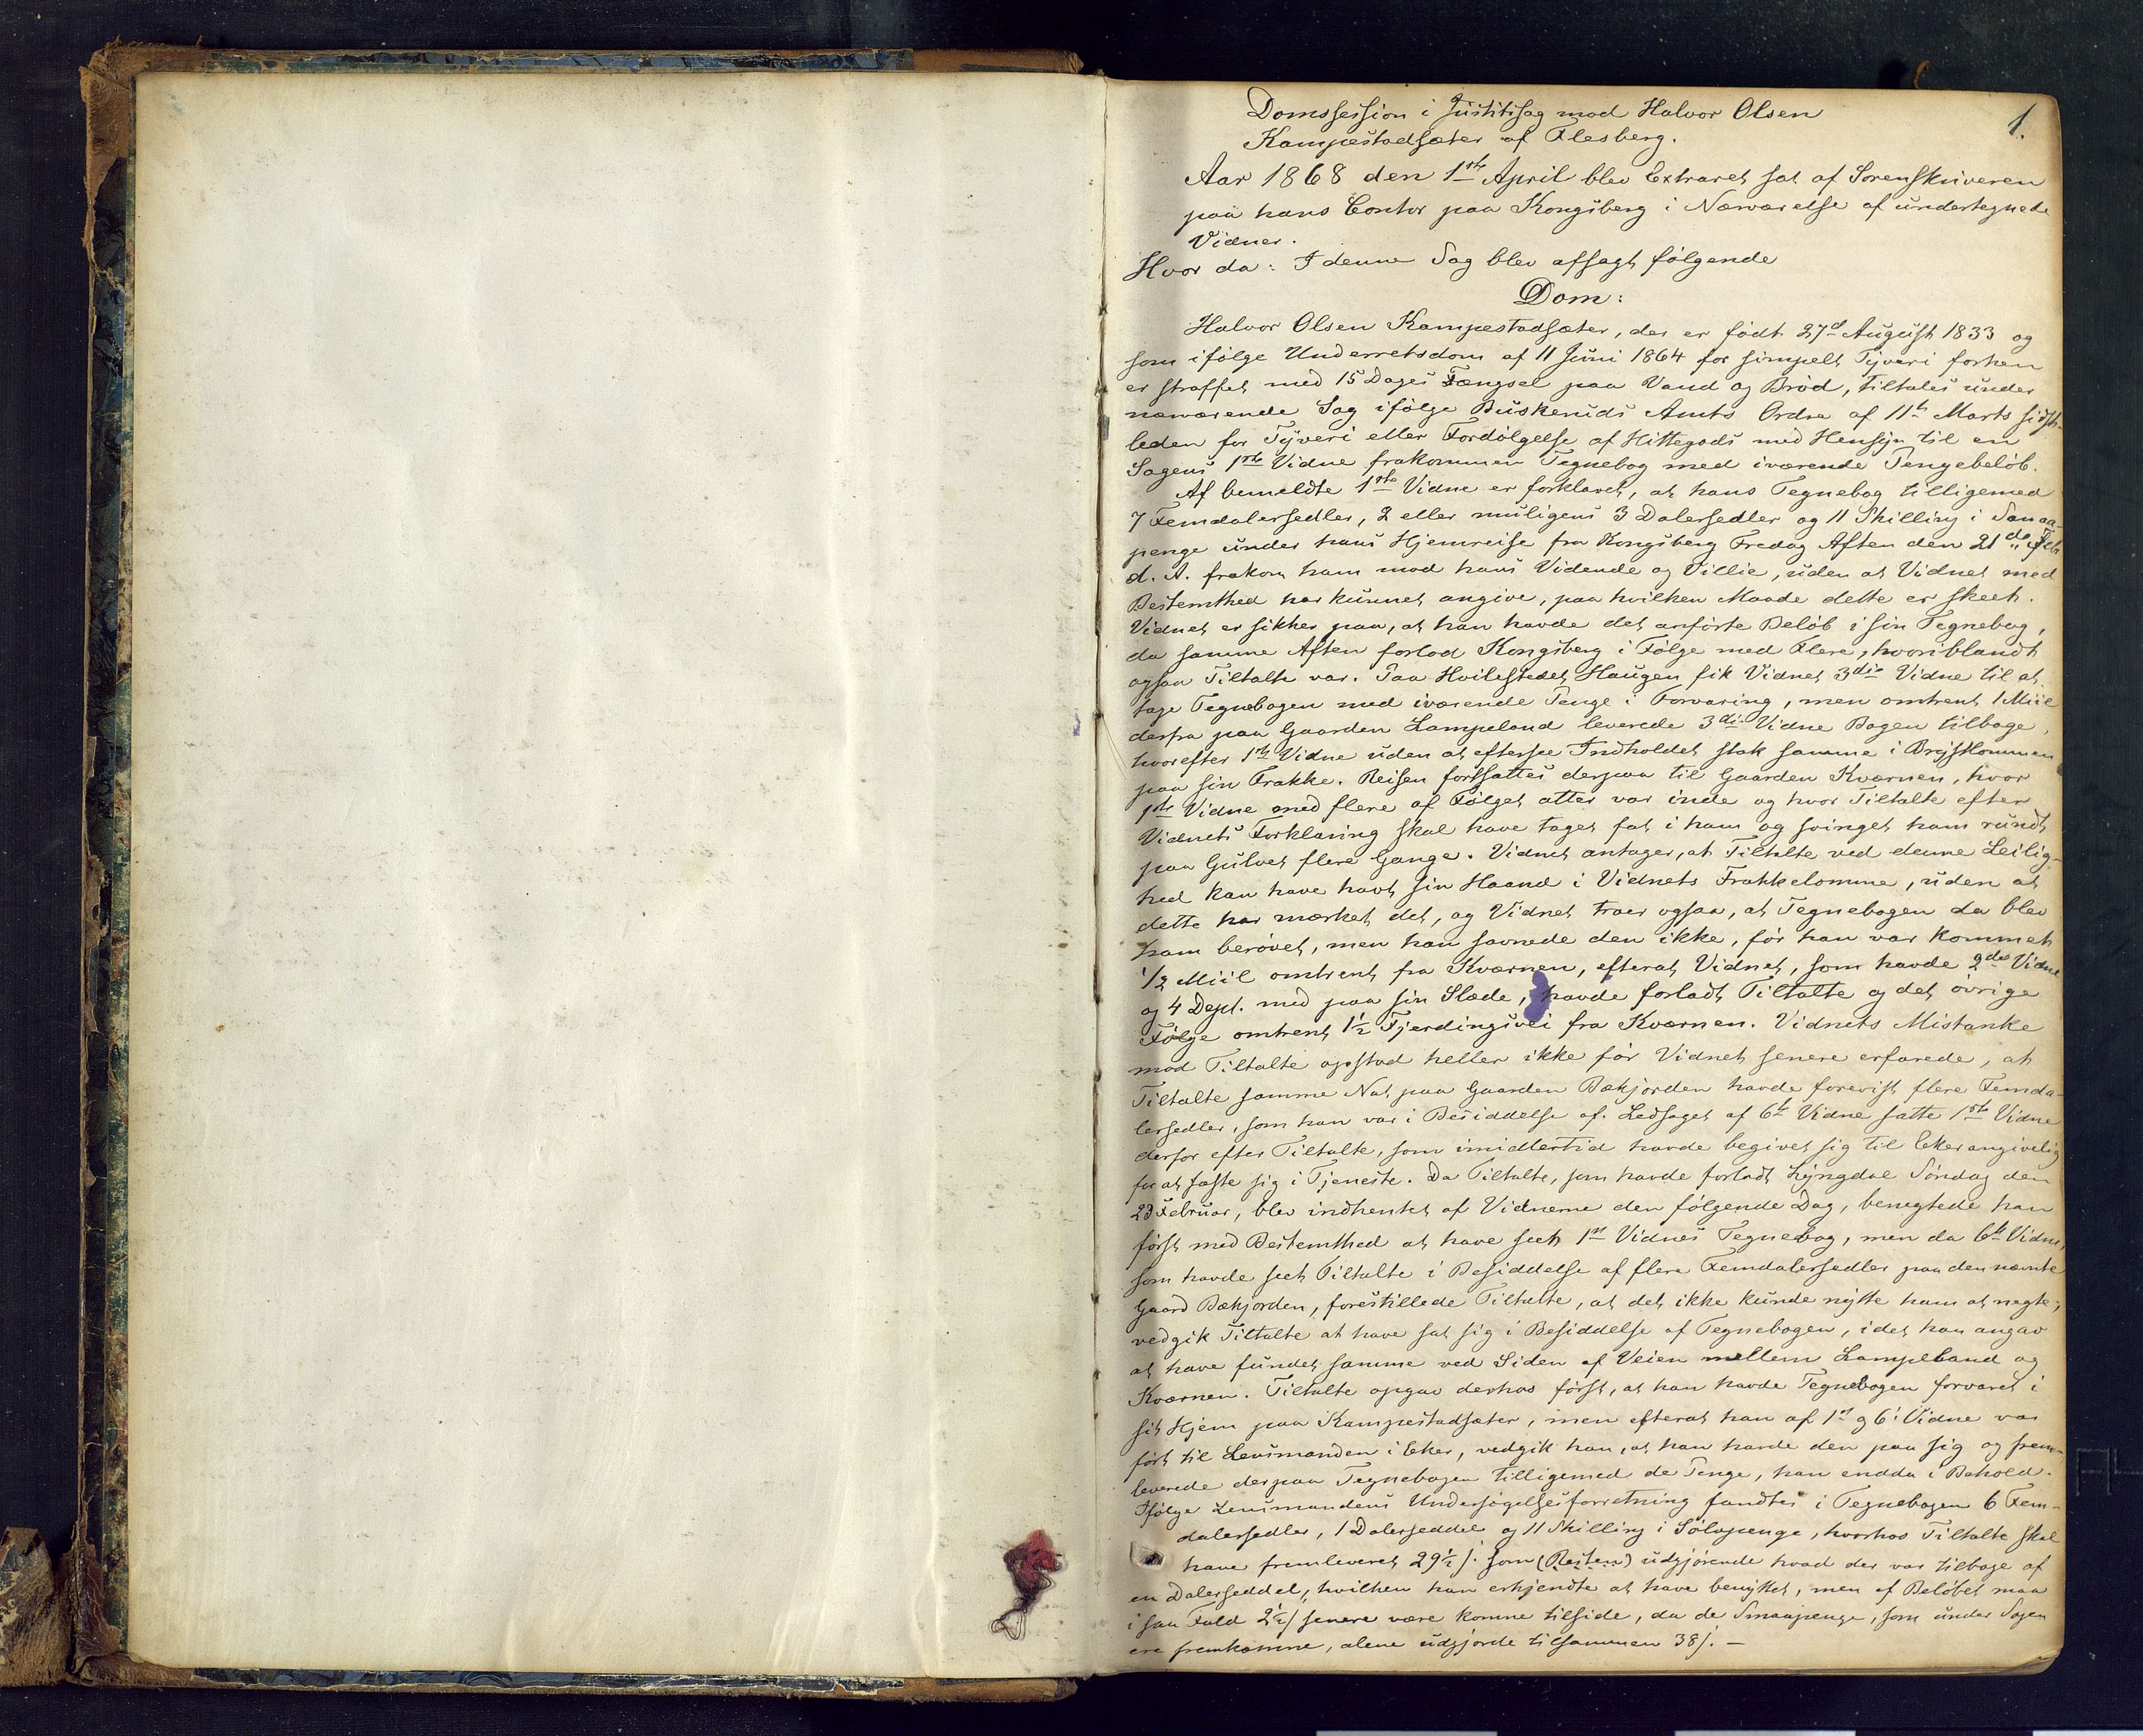 1.
Domssession i Justitssag mod Halvor Olsen
Kampestadsæter af Flesberg.
Aar 1868 den 1ste April blev Extraret sat af Sorenskriveren
paa hans Contor paa Kongsberg i Nærværelse af undertegnede
Vidner.
Hvor da: I denne Sag blev afsagt følgende
Dom:
Halvor Olsen Kampestadsæter, der er født 27d August 1833 og
som ifølge Underretsdom af 11 Juni 1864 for simpelt Tyveri forhen
er straffet med 15 Dages Fængsel paa Vand og Brød, tiltales under
nærværende Sag ifølge Buskeruds Amts Ordre af 11te Marts sidst-
leden for Tyveri eller Fordølgelse af Hittegods med Hensyn til en
Sagens 1ste Vidne frakommen Tegnebog med iværende Pengebeløb.
Af bemeldte 1ste Vidne er forklaret, at hans Tegnebog tilligemed
7 Femdalersedler, 2 eller muligens 3 Dalersedler og 11 Skilling i Smaa-
penge under hans Hjemreise fra Kongsberg Fredag Aften den 21de Feb
d. A. frakom ham mod hans Vidende og Villie, uden at Vidnet med
Bestemthed har kunnet angive, paa hvilken Maade dette er skeet.
Vidnet er sikker paa, at han havde det anførte Beløb i sin Tegnebog,
da samme Aften forlod Kongsberg i Følge med Flere, hvoriblandt
ogsaa Tiltalte var. Paa Hvilestedet Haugen fik Vidnet 3die Vidne til at
tage Tegnebogen med iværende Penge i Forvaring, men omtrent 1 Miil
derfra paa Gaarden Lampeland leverede 3di Vidne Bogen tilbage,
hvorefter 1ste Vidne uden at eftersee Indholdet stak samme i Brystlommen
paa sin Frakke. Reisen fortsattes derpaa til Gaarden Kværnen, hvor
1ste Vidne med flere af Følget atter var inde og hvor Tiltalte efter
Vidnets Forklaring skal have taget fat i ham og svinget ham rundt
paa Gulvet flere Gange. Vidnet antager, at Tiltalte ved denne Leilig-
hed kan have havt sin Haand i Vidnets Frakkelomme, uden at
dette har mærket det, og Vidnet troer ogsaa, at Tegnebogen da blev
ham berøvet, men han savnede den ikke, før han var kommet
1/2 Miil omtrent fra Kværnen, efterat Vidnet, som havde 2det Vidne
og 4 Dept. med paa sin Slæde, havde forladt Tiltalte og det øvrige
Følge omtrent 1 1/2 Fjerdingsvei fra Kværnen. Vidnets Mistanke
mod Tiltalte opstod heller ikke før Vidnet senere erfarede, at
Tiltalte samme Nat paa Gaarden Bækjorden havde forevist flere Femda-
lersedler, som han var i Besiddelse af. Ledsaget af 6te Vidne satte 1ste Vidne
derfor efter Tiltalte, som imidlertid havde begivet sig til Eker angivelig
for at fæste sig i Tjeneste. Da Tiltalte, som havde forladt Lyngdal Søndag den
23 Februar, blev indhentet af Vidnerne den følgende Dag, benegtede han
først med Bestemthed at have seet 1ste Vidnes Tegnebog, men da 6te Vidne,
som havde seet Tiltalte i Besiddelse af flere Femdalersedler paa den nævnte
Gaard Bækjorden, forestillede Tiltalte, at det ikke kunde nytte ham at negte,
vedgik Tiltalte at have sat sig i Besiddelse af Tegnebogen, idet han angav
at have fundet samme ved Siden af Veien mellem Lampeland og
Kværnen. Tiltalte opgav derhos først, at han havde Tegnebogen forvaret i
sit Hjem paa Kampestadsæter, men efterat han af 1ste og 6te Vidne var
ført til Lensmanden i Eker, vedgik han, at han havde den paa sig og frem-
leverede derpaa Tegnebogen tilligemed de Penge, han endda i Behold.
Ifølge Lensmandens Undersøgelsesforretning fandtes i Tegnebogen 6 Fem-
dalersedler, 1 Dalerseddel og 11 Skilling i Sølvpenge, hvorhos Tiltalte skal
have fremleveret 29 1/2 s. som (Resten) udgjørende hvad der var tilbage af
en Dalerseddel, hvilken han erkjendte at have benyttet, men af Beløbet maa
i saa Fald 2 1/2 s senere være komne tilside, da de Smaapenge, som under Sagen
ere fremkomne, alene udgjorde tilsammen 38 s. —